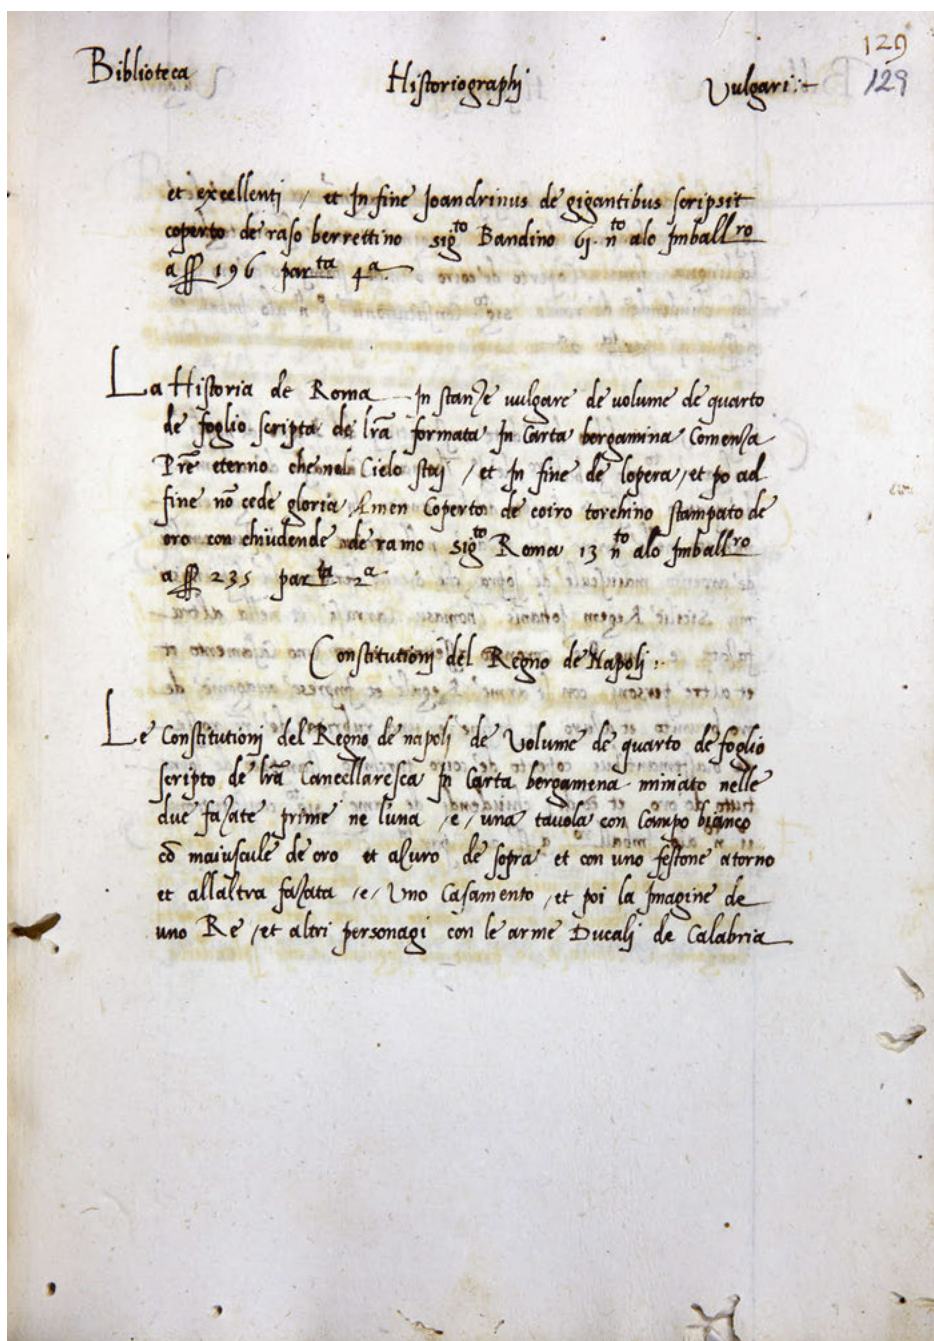 129
Biblioteca Historiographi Vulgari :~
129
et excellenti / et In fine Joandrinus de gigantibus scripsit
coperto de raso berrettino sig.to Bandino 61. n.to alo Imball.ro
a 196 par.ta 4.a
La Historia de Roma In stanze vulgare de volume de quarto
de foglio scripta de lr̄a formata In Carta bergamina Comenza
Pr̄e eterno che nel Cielo staj / et In fine de lopera / et po ad
fine nō cede gloria Amen Coperto de coiro torchino stampato de
oro con chiudende de ramo sig.to Roma 13 n.to alo Imball.ro
a 235 par.ta 2.a
Constitutionj del Regno de Napolj :.
Le Constitutionj del Regno de napolj de Volume de quarto de foglio
scripto de lr̄a Cancellaresca In Carta bergamena miniato nelle
due fazate prime ne luna /e/ una tavola con Campo bianco
cō maiuscule de oro et azuro de sopra et con uno festone atorno
et allaltra fazata /e/ Uno Casamento / et poi la Imagine de
uno Re / et altri personagi con le arme Ducalj de Calabria